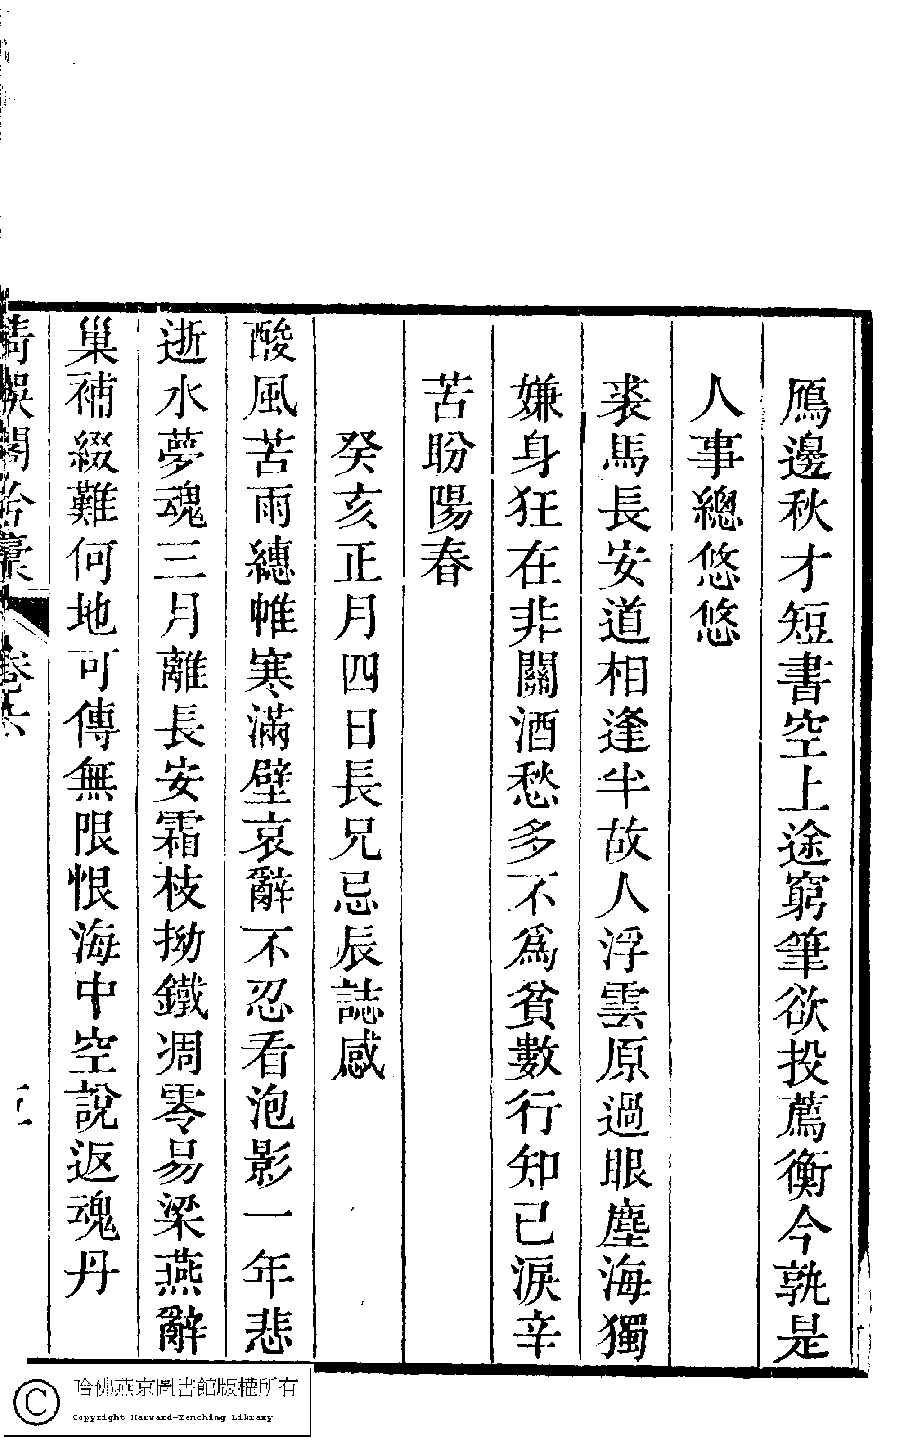 鴈邊秋才短書空上途窮筆欲投薦衡今孰是
人事總悠悠
裘馬長安道相逢半故人浮雲原過眼塵海獨
嫌身狂在非關酒愁多不爲貧數行知己淚辛
苦盼陽春
癸亥正月四日長兄忌辰誌感
酸風苦雨繐帷寒滿壁哀辭不忍看泡影一年悲
逝水夢魂三月離長安霜枝拗鐵凋零易梁燕辭
巢補綴難何地可傳無限恨海中空說返魂丹
哈佛燕京圖書館版權所有
Copyright Harvard-Yenching Library